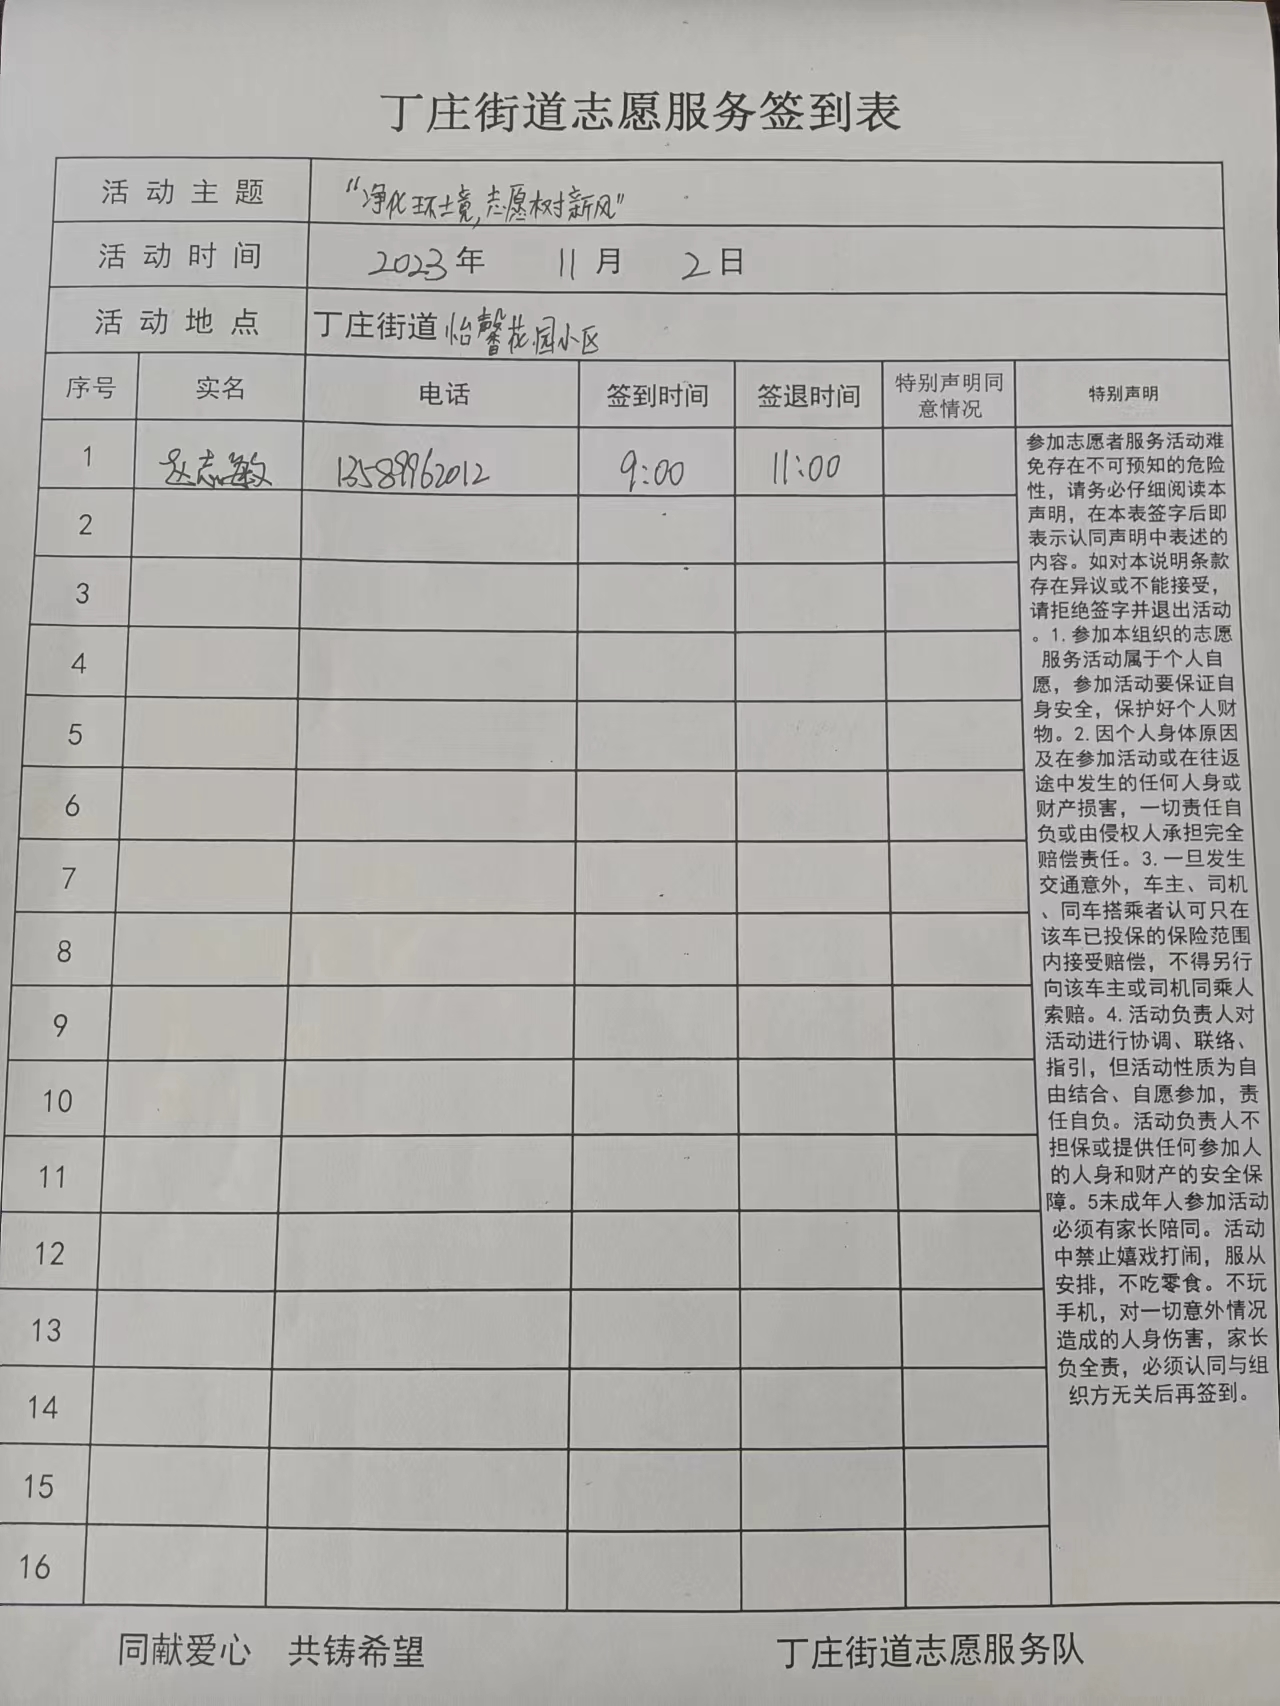 丁庄街道志愿服务签到表
活动主题 “净化环境,志愿树新风”
活动时间 2023年 11月 2日
活动地点 丁庄街道怡馨花园小区
序号 实名 电话 签到时间 签退时间 特别声明同意情况 特别声明
1 赵志敏 13589962012 9:00 11:00
2
3
4
5
6
7
8
9
10
11
12
13
14
15
16
参加志愿者服务活动难
免存在不可预知的危险
性，请务必仔细阅读本
声明，在本表签字后即
表示认同声明中表述的
内容。如对本说明条款
存在异议或不能接受，
请拒绝签字并退出活动
。1.参加本组织的志愿
服务活动属于个人自
愿，参加活动要保证自
身安全，保护好个人财
物。2.因个人身体原因
及在参加活动或在往返
途中发生的任何人身或
财产损害，一切责任自
负或由侵权人承担完全
赔偿责任。3.一旦发生
交通意外，车主、司机
、同车搭乘者认可只在
该车已投保的保险范围
内接受赔偿，不得另行
向该车主或司机同乘人
索赔。4.活动负责人对
活动进行协调、联络、
指引，但活动性质为自
由结合、自愿参加，责
任自负。活动负责人不
担保或提供任何参加人
的人身和财产的安全保
障。5未成年人参加活动
必须有家长陪同。活动
中禁止嬉戏打闹，服从
安排，不吃零食。不玩
手机，对一切意外情况
造成的人身伤害，家长
负全责，必须认同与组
织方无关后再签到。
同献爱心 共铸希望 丁庄街道志愿服务队